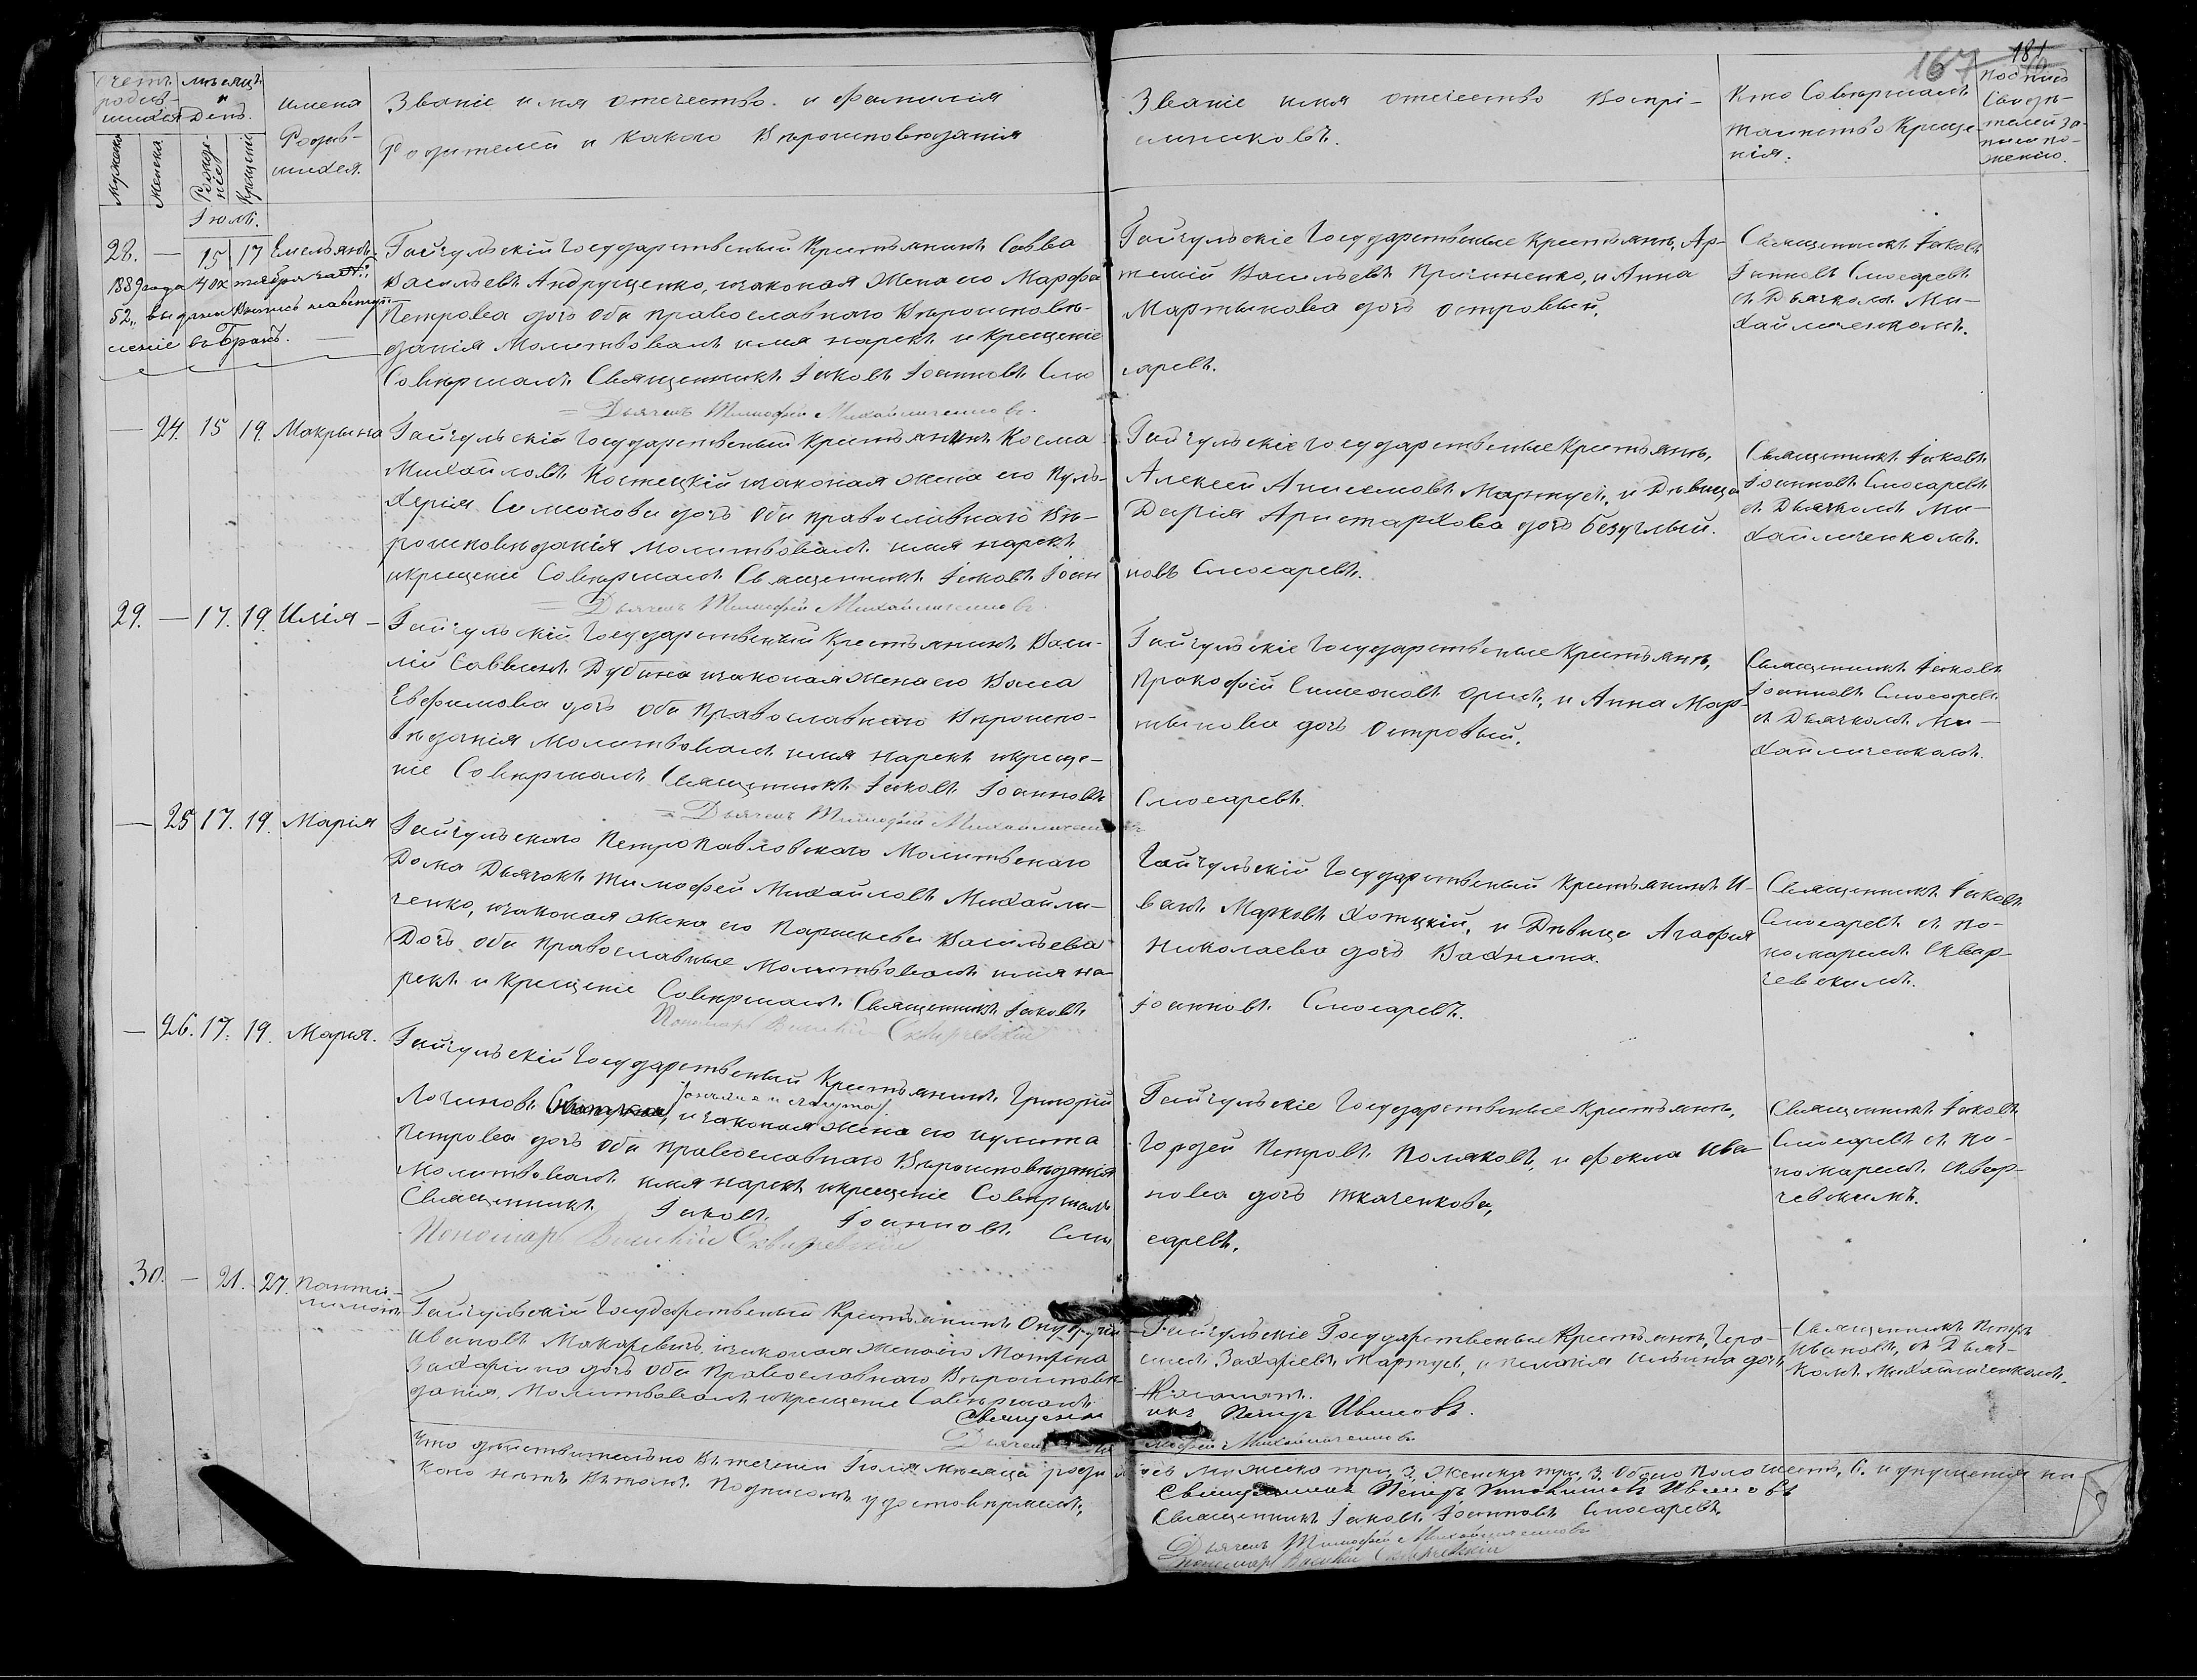 167 181
счетъ родив-
шихся
мѣсяцъ
и
День.
имена
Родив-
шихся.
Званіе имя отчество и фамилія
Родителей и какого Вѣроисповѣданія
Званіе имя отчество Воспрі-
емниковъ.
Кто Совершалъ
таинство Креще-
нія.
Подпись
Свидѣ-
телей за-
писи по-
желанію.
Мужеска
Женска
Рожде-
нія
Крещенія
Іюль.
28. — 15 17 Емельянъ
1889 года 4 октября за №
52, выдана выпись на вступ-
леніе въ бракъ.
Гайчульскій Государственный Крестьянинъ Савва
Васильевъ Андрущенко, изаконая жена его Марфа
Петрова дочь оби православнаго Вѣроисповѣ-
данія Молитвовалъ имя нарекъ и крещеніе
Совершалъ Священникъ Іаковъ Іоанновъ Слю
Дьячекъ Тимофей Михайличенковъ.
Гайчульскіе Государственые Крестьянѣ, Ар-
темій Васильевъ Причиненко, и Анна
Мартынова дочь островый.
саревъ.
Священникъ Іаковъ
Іоанновъ Слюсаревъ
съ Дьячкомъ Ми-
хайличенкомъ.
— 24. 15 19. Макрына
Гайчульскій Государственый Крестьянинъ Косма
Михайловъ Костецкій изаконая жена его Пуль-
херія Симеонова дочь оби православнаго Вѣ-
роисповѣданія молитвовалъ имя нарекъ
икрещеніе Совершалъ Священникъ Іаковъ Іоан
Дьячекъ Тимофей Михайличенковъ.
Гайчульскіе Государственые Крестьянѣ,
Алексей Анисимовъ Мартусь, и Дѣвица
Дарія Аристархова дочь безуглый.
новъ Слюсаревъ.
Священникъ Іаковъ
Іоанновъ Слюсаревъ
съ Дьячкомъ Ми-
хайличенкомъ.
29. — 17. 19. Илія —
Гайчульскій Государственый Крестьянинъ Васи-
лій Саввинъ Дубина изаконая жена его Васса
Евфимова дочь оби Православнаго Вѣроиспо-
вѣданія Молитвовалъ имя нарекъ икреще-
ніе Совершалъ Священникъ Іаковъ Іоанновъ
Дьячекъ Тимофей Михайличенковъ
Гайчульскіе Государственые Крестьянѣ,
Прокофій Симеоновъ орелъ, и Анна Мар-
тынова дочь островый.
Слюсаревъ.
Священникъ Іаковъ
Іоанновъ Слюсаревъ
съ Дьячкомъ Ми-
хайличенкомъ.
— 25 17. 19. Марія
Гайчульскаго Петропавловскаго Молитвенаго
Дома Дьячокъ Тимофей Михайловъ Михайли-
ченко, изаконая жена его Параскева Васильева
Дочь оби православные Молитвовалъ имя на-
рекъ и крещеніе Совершалъ Священникъ Іаковъ
Пономарь Василій Сквирчевскій
Гайчульскій Государственый Крестьянинъ И-
ванъ Марковъ Хотицкій, и Дѣвица Агафія
Николаева дочь Вахнина.
Іоанновъ Слюсаревъ.
Священникъ Іаковъ
Слюсаревъ съ по-
номаремъ Сквир-
чевскимъ.
— 26. 17. 19. Марія.
Гайчульскій Государственый Крестьянинъ Григорій
Логиновъ изаконая жена его иулита
Петрова дочь оби православнаго Вѣроисповѣданія
Молитвовалъ имя нарекъ икрещеніе Совершалъ
Священникъ Іаковъ Іоанновъ Слю
Пономарь Василій Сквирчевскій
Гайчульскіе Государственые Крестьянѣ,
Гордей Петровъ Поляковъ, и Фекла Ива-
нова дочь ткаченкова,
саревъ.
Священникъ Іаковъ
Слюсаревъ съ по-
номаремъ Сквир-
чевскимъ.
30. — 21. 27. Панте-
лимонъ
Гайчульскій Государственый Крестьянинъ Онуфрій
Ивановъ Макаревичъ, изаконая жена его Матрона
Захаріина дочь оби Православнаго Вѣроисповѣ-
данія, Молитвовалъ икрещеніе Совершалъ
Священни
Дьячекъ Ти
Гайчульскіе Государственые Крестьянѣ, Гера-
симъ Захаріевъ Мартусь, и пелагія Ильина дочь
икъ Петръ Ивановъ.
мофей Михайличенковъ
Священникъ Петръ
Ивановъ, съ Дьяч-
комъ Михайличенкомъ.
Что дѣйствительно Втеченіи Іюля мѣсяца роди лось Мужеска три, 3, Женска три, 3. Обоего пола шесть, 6. и упущенія ни
кого нѣтъ Втомъ Подписомъ удостовѣряемъ,
Священникъ Петръ Ивановъ
Священникъ Іаковъ Іоанновъ Слюсаревъ,
Дьячекъ Тимофей Михайличенковъ
Пономарь Василій Сквирчевскій